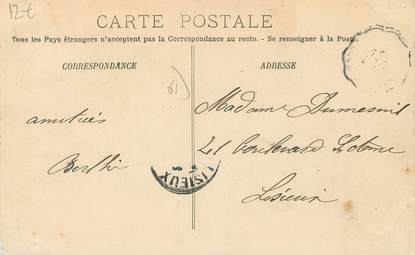 12€
CARTE POSTALE
Tous les Pays étrangers n'acceptent pas la Correspondance au recto. - Se renseigner à la Poste.
CORRESPONDANCE
ADRESSE
Madame Dumesnil
amitiés
21 boulevard
Berthe
LISIEUX
Lisieux